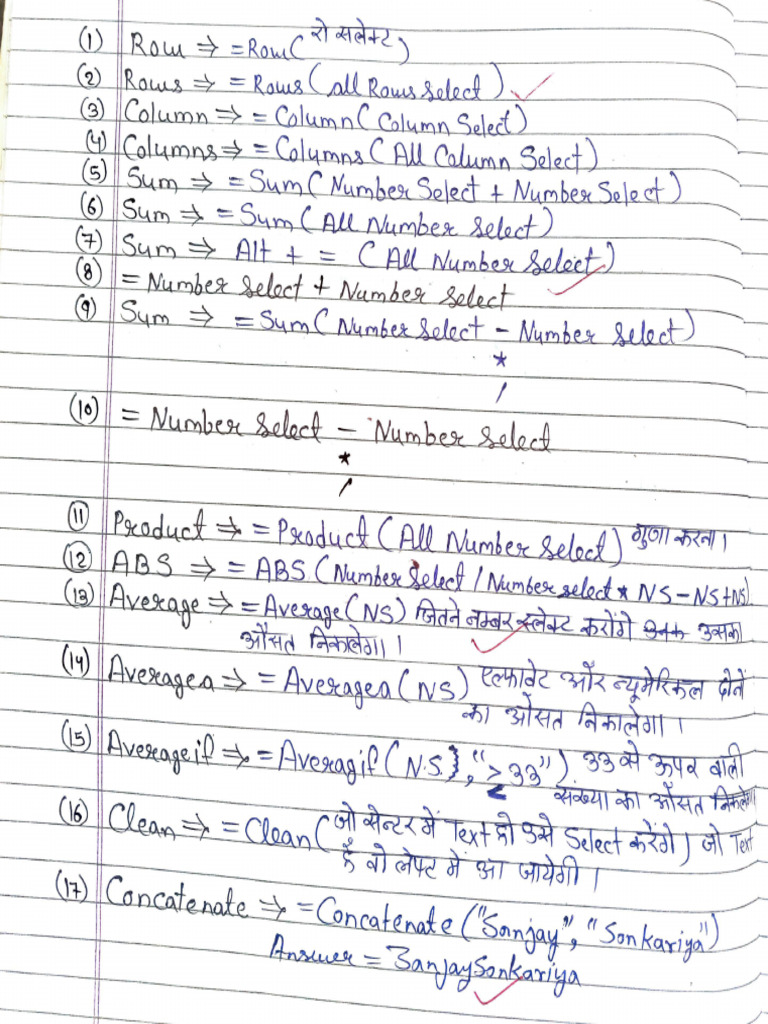 (1) Row ⇒ =Row( रो सलेक्ट )
(2) Rows ⇒ = Rows (all Rows select)
(3) Column ⇒ = Column (Column Select)
(4) Columns ⇒ = Columns (All Column Select)
(5) Sum ⇒ = Sum (Number Select + Number Select)
(6) Sum ⇒ = Sum (All Number Select)
(7) Sum ⇒ Alt + = (All Number Select)
(8) = Number select + Number select
(9) Sum ⇒ = Sum (Number select - Number select)
*
/
(10) = Number select - Number select
*
/
(11) Product ⇒ = Product (All Number select) गुणा करना।
(12) ABS ⇒ = ABS (Number select / Number select * NS - NS + NS)
(13) Average ⇒ = Average (NS) जितने नम्बर स्लेक्ट करोंगे उसका
औसत निकालेगा।
(14) Averagea ⇒ = Averagea (NS) एल्फाबेट और न्यूमेरिकल दोनें
का औसत निकालेगा।
(15) Averageif ⇒ = Averagif (N.S.}, "≥33") 33 से ऊपर वाली
संख्या का औसत निकालेगा
(16) Clean ⇒ = Clean (जो सेन्टर में Text हो उसे Select करेंगे) जो Text
है वो लेफ्ट में आ जायेगी।
(17) Concatenate ⇒ = Concatenate ("Sanjay", "Sonkariya")
Answer = SanjaySonkariya